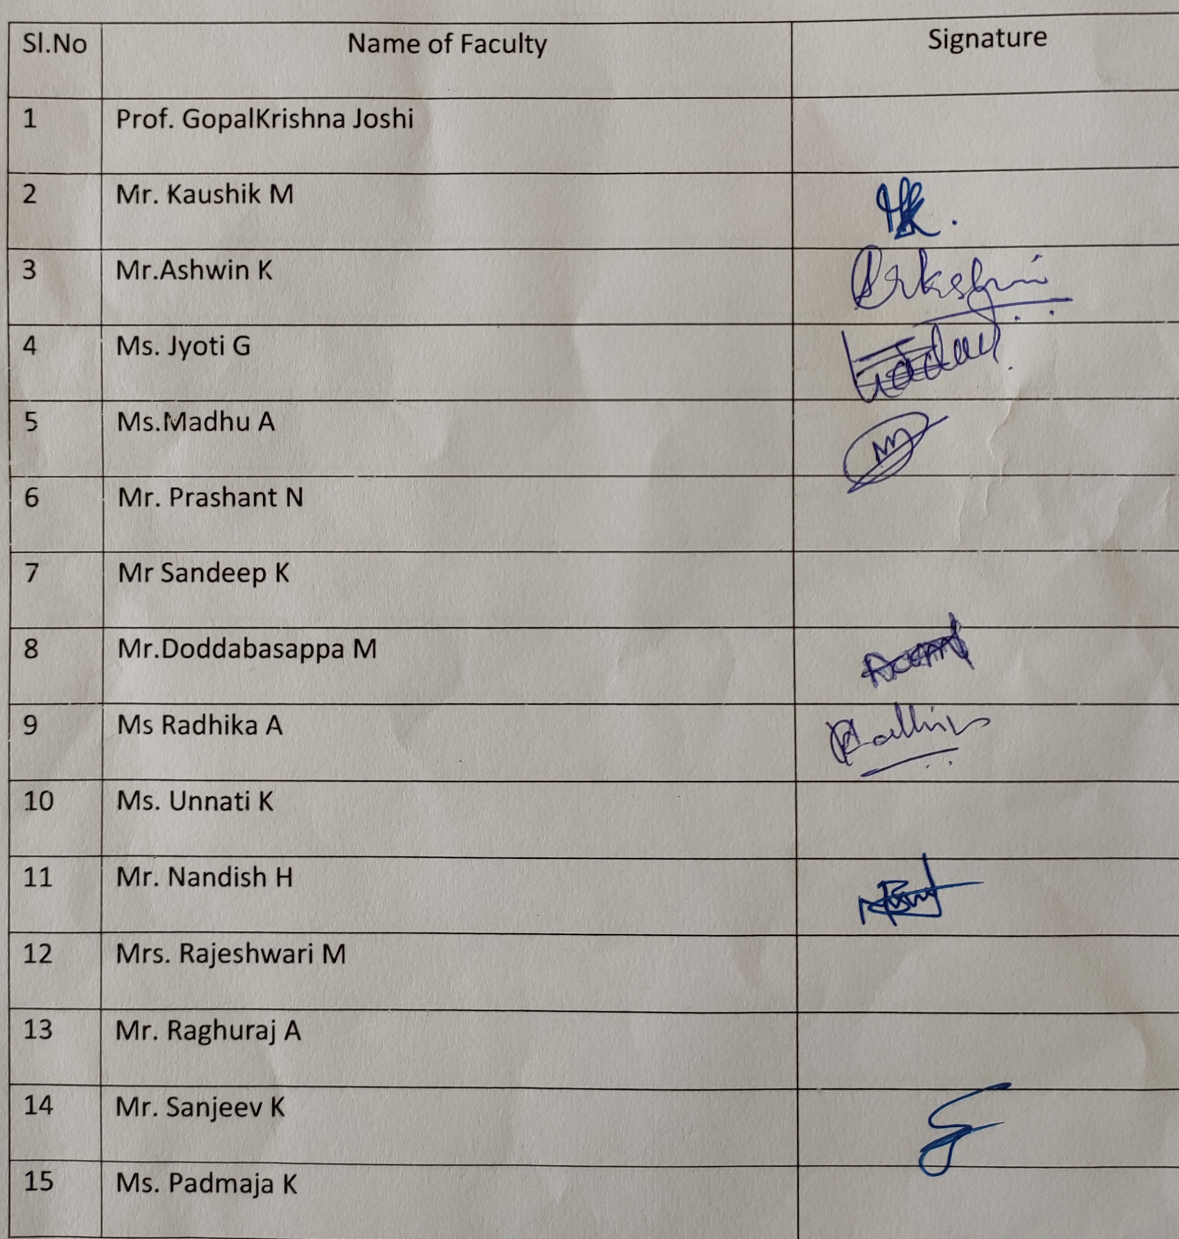 Sl.No Name of Faculty Signature
1 Prof. GopalKrishna Joshi
2 Mr. Kaushik M
3 Mr.Ashwin K
4 Ms. Jyoti G
5 Ms.Madhu A
6 Mr. Prashant N
7 Mr Sandeep K
8 Mr.Doddabasappa M
9 Ms Radhika A
10 Ms. Unnati K
11 Mr. Nandish H
12 Mrs. Rajeshwari M
13 Mr. Raghuraj A
14 Mr. Sanjeev K
15 Ms. Padmaja K